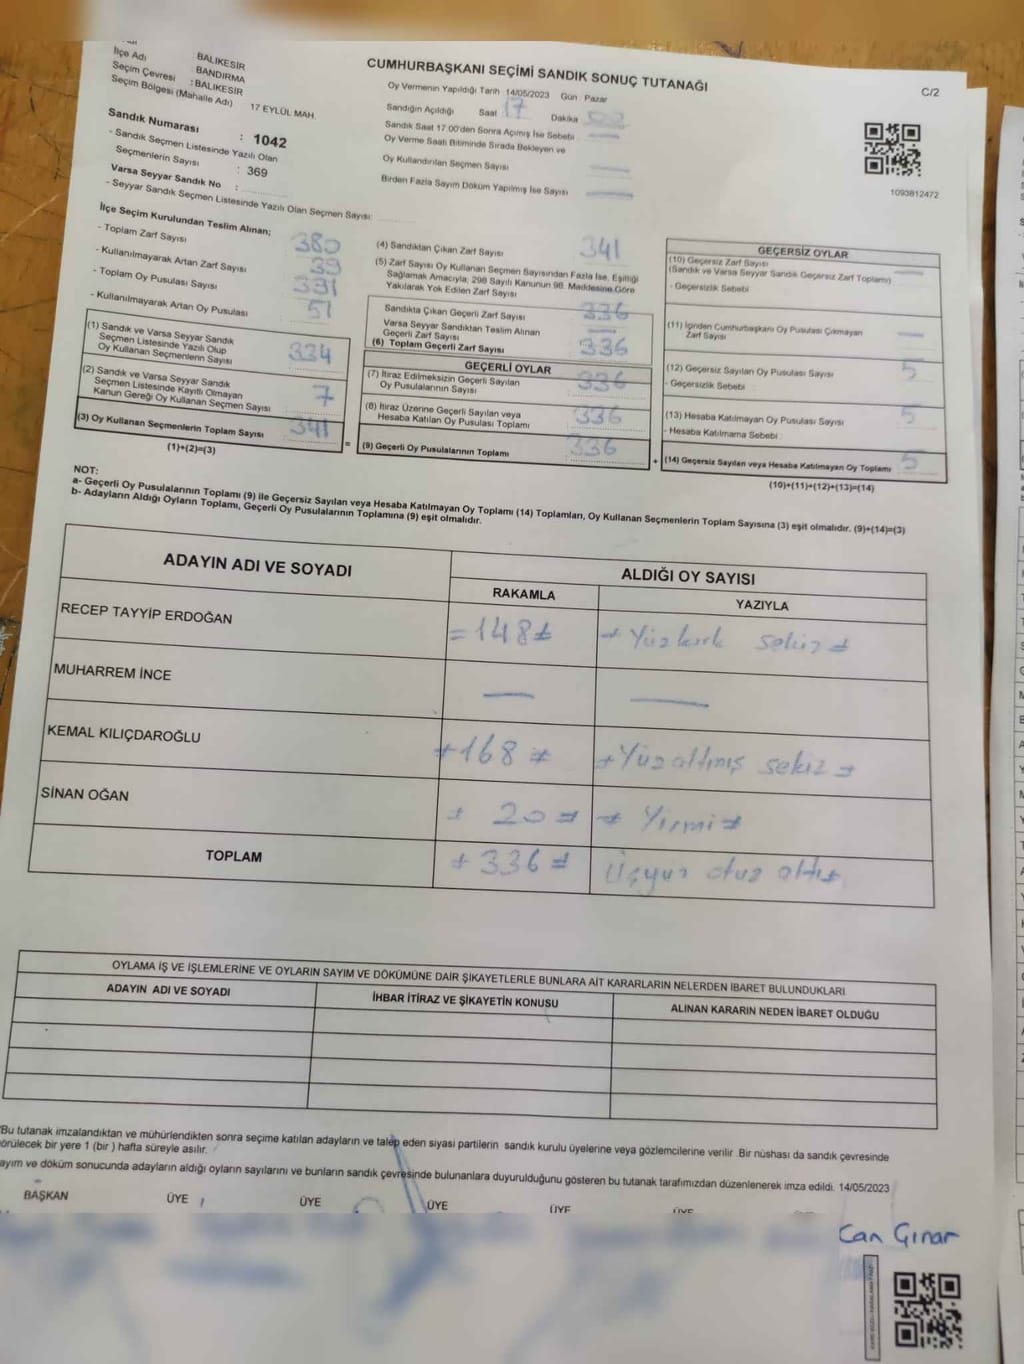 İlçe Adı : BALIKESİR
Seçim Çevresi : BANDIRMA
Seçim Bölgesi (Mahalle Adı) : BALIKESİR
17 EYLÜL MAH.
CUMHURBAŞKANI SEÇİMİ SANDIK SONUÇ TUTANAĞI
C/2
Oy Vermenin Yapıldığı Tarih 14/05/2023 Gün Pazar
Sandığın Açıldığı Saat 17 Dakika
Sandık Saat 17.00'den Sonra Açımış İse Sebebi
Oy Verme Saati Bitiminde Sırada Bekleyen ve
Oy Kullandırılan Seçmen Sayısı
Birden Fazla Sayım Döküm Yapılmış İse Sayısı
1093812472
Sandık Numarası : 1042
- Sandık Seçmen Listesinde Yazılı Olan
Seçmenlerin Sayısı : 369
Varsa Seyyar Sandık No :
- Seyyar Sandık Seçmen Listesinde Yazılı Olan Seçmen Sayısı:
İlçe Seçim Kurulundan Teslim Alınan;
- Toplam Zarf Sayısı 380
- Kullanılmayarak Artan Zarf Sayısı 39
- Toplam Oy Pusulası Sayısı
- Kullanılmayarak Artan Oy Pusulası 51
(1) Sandık ve Varsa Seyyar Sandık
Seçmen Listesinde Yazılı Olup
Oy Kullanan Seçmenlerin Sayısı 334
(2) Sandık ve Varsa Seyyar Sandık
Seçmen Listesinde Kayıtlı Olmayan
Kanun Gereği Oy Kullanan Seçmen Sayısı 7
(3) Oy Kullanan Seçmenlerin Toplam Sayısı 341
(1)+(2)=(3)
(4) Sandıktan Çıkan Zarf Sayısı 341
(5) Zarf Sayısı Oy Kullanan Seçmen Sayısından Fazla İse, Eşitliği
Sağlamak Amacıyla, 298 Sayılı Kanunun 98. Maddesine Göre
Yakılarak Yok Edilen Zarf Sayısı
Sandıkta Çıkan Geçerli Zarf Sayısı 336
Varsa Seyyar Sandıktan Teslim Alınan
Geçerli Zarf Sayısı
(6) Toplam Geçerli Zarf Sayısı 336
GEÇERLİ OYLAR
(7) İtiraz Edilmeksizin Geçerli Sayılan
Oy Pusulalarının Sayısı 336
(8) İtiraz Üzerine Geçerli Sayılan veya
Hesaba Katılan Oy Pusulası Toplamı 336
= (9) Geçerli Oy Pusulalarının Toplamı 336 +
GEÇERSİZ OYLAR
(10) Geçersiz Zarf Sayısı
(Sandık ve Varsa Seyyar Sandık Geçersiz Zarf Toplamı)
- Geçersizlik Sebebi
(11) İçinden Cumhurbaşkanı Oy Pusulası Çıkmayan
Zarf Sayısı
(12) Geçersiz Sayılan Oy Pusulası Sayısı 5
- Geçersizlik Sebebi
(13) Hesaba Katılmayan Oy Pusulası Sayısı 5
- Hesaba Katılmama Sebebi
(14) Geçersiz Sayılan veya Hesaba Katılmayan Oy Toplamı 5
(10)+(11)+(12)+(13)=(14)
NOT:
a- Geçerli Oy Pusulalarının Toplamı (9) ile Geçersiz Sayılan veya Hesaba Katılmayan Oy Toplamı (14) Toplamları, Oy Kullanan Seçmenlerin Toplam Sayısına (3) eşit olmalıdır. (9)+(14)=(3)
b- Adayların Aldığı Oyların Toplamı, Geçerli Oy Pusulalarının Toplamına (9) eşit olmalıdır.
ADAYIN ADI VE SOYADI
ALDIĞI OY SAYISI
RAKAMLA YAZIYLA
RECEP TAYYİP ERDOĞAN =148= Yüzkırk sekiz
MUHARREM İNCE
KEMAL KILIÇDAROĞLU 168 Yüzaltmış sekiz
SİNAN OĞAN 20 Yirmi
TOPLAM 336 Üçyüz otuz altı
OYLAMA İŞ VE İŞLEMLERİNE VE OYLARIN SAYIM VE DÖKÜMÜNE DAİR ŞİKAYETLERLE BUNLARA AİT KARARLARIN NELERDEN İBARET BULUNDUKLARI
ADAYIN ADI VE SOYADI İHBAR İTİRAZ VE ŞİKAYETİN KONUSU ALINAN KARARIN NEDEN İBARET OLDUĞU
Bu tutanak imzalandıktan ve mühürlendikten sonra seçime katılan adayların ve talep eden siyasi partilerin sandık kurulu üyelerine veya gözlemcilerine verilir .Bir nüshası da sandık çevresinde
görülecek bir yere 1 (bir ) hafta süreyle asılır.
ayım ve döküm sonucunda adayların aldığı oyların sayılarını ve bunların sandık çevresinde bulunanlara duyurulduğunu gösteren bu tutanak tarafımızdan düzenlenerek imza edildi. 14/05/2023
BAŞKAN ÜYE ÜYE ÜYE ÜYE ÜYE
Can Çınar